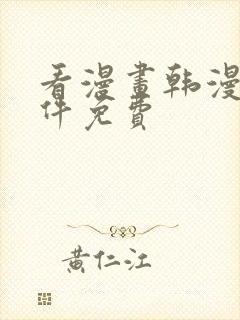 看漫畫韩漫
件免費
黄仁江